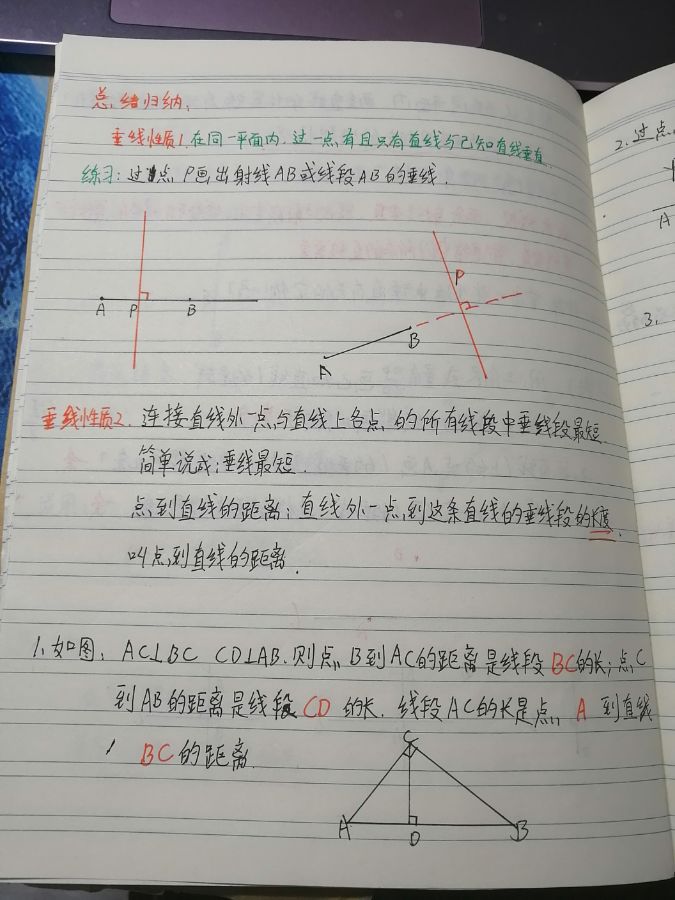 总结归纳:
垂线性质1.在同一平面内,过一点有且只有直线与已知直线垂直
练习:过点P画出射线AB或线段AB的垂线.
A P B
P
B
A
垂线性质2.连接直线外一点与直线上各点的所有线段中垂线段最短
简单说成:垂线最短.
点到直线的距离:直线外一点到这条直线的垂线段的长度.
叫点到直线的距离.
1.如图,AC⊥BC CD⊥AB.则点B到AC的距离是线段BC的长;点C
到AB的距离是线段CD的长.线段AC的长是点A到直线
BC的距离.
C
A D B
2.过点
A
3.